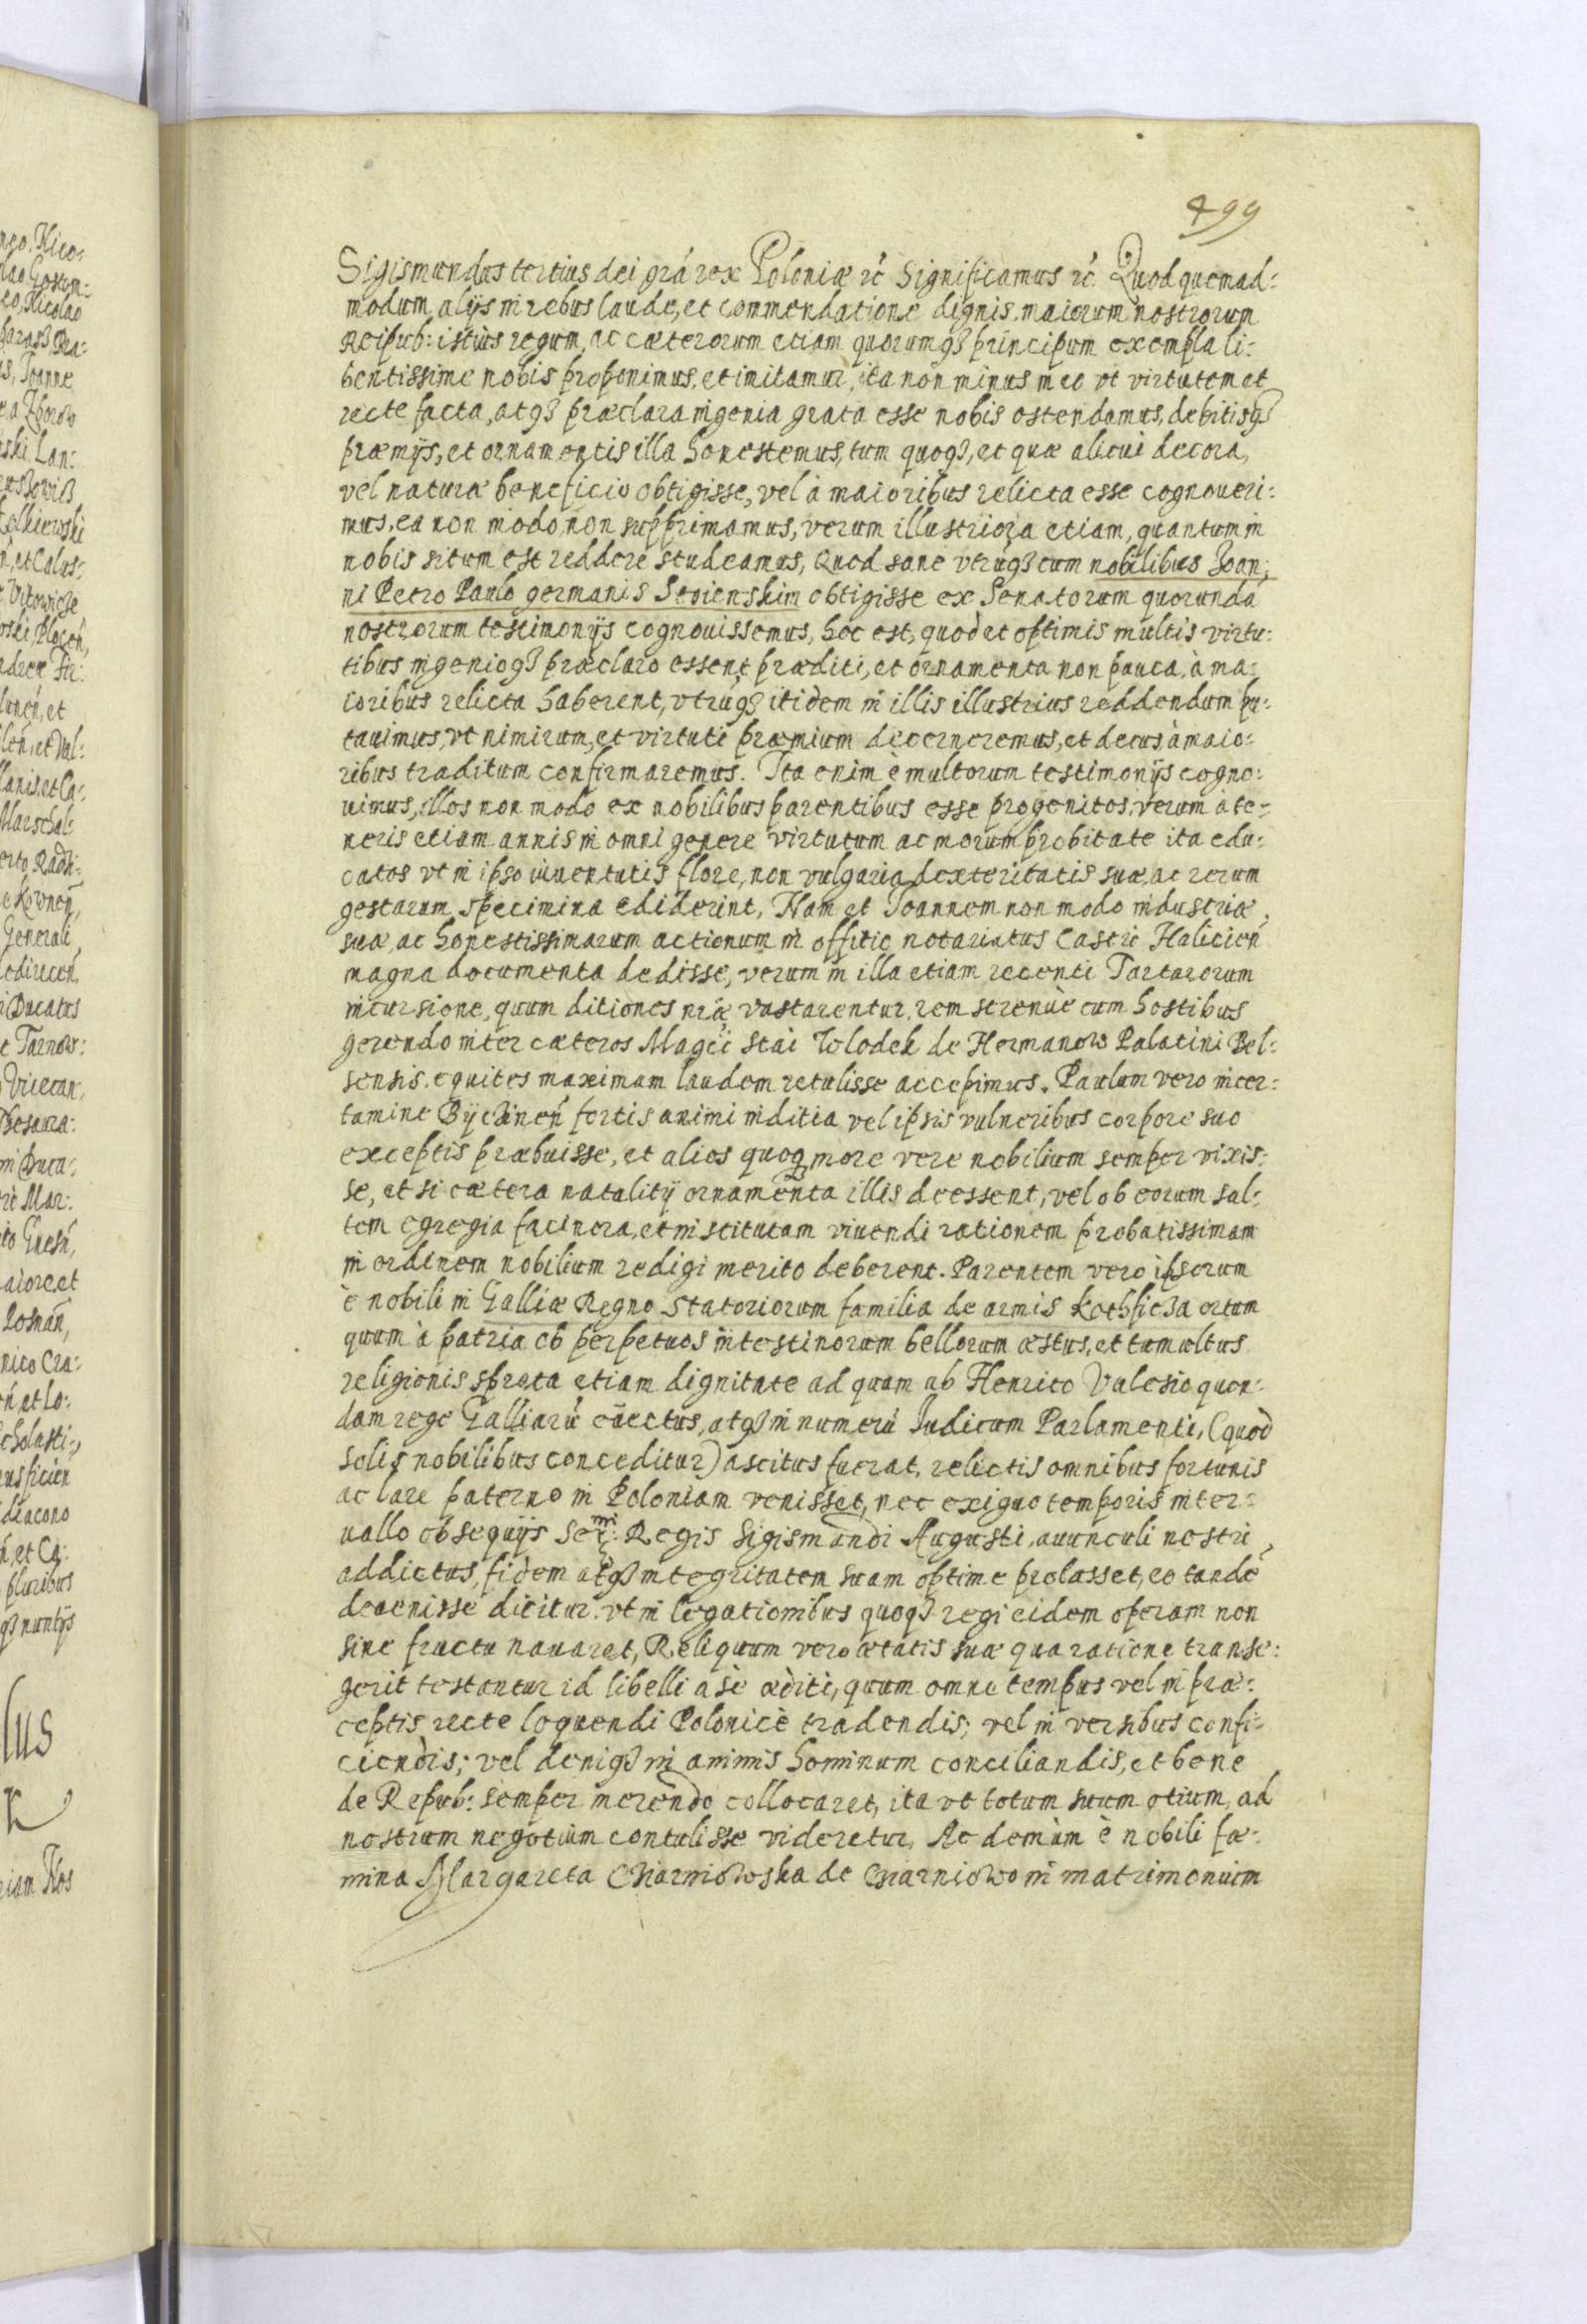 499
Sigismundus tertius dei grá rex Poloniæ rc̃ Significamus rc̃. Quod quemad:
modum alijs in rebus laude, et commendatione dignis, maiorum nostrorum
Reipub: istius regum, ac cæterorum etiam quorumqȝ principum exempla li:
bentissime nobis proponimus, et imitamur, ita non minus in eo vt virtutem et
recte facta, atqȝ præclara ingenia grata esse nobis ostendamus, debitisqȝ
præmijs, et ornamentis illa honestemus, tum quoqȝ, et quæ alicui decora,
vel naturæ beneficio obtigisse, vel à maioribus relicta esse cognoueri:
mus, ea non modo non supprimamus, verum illustriora etiam, quantum in
nobis situm est reddere studeamus, Quod sane vtrúqȝ cum nobilibus Joan:
ni Petro Paulo germanis Stoienskim obtigisse ex Senatorum quorundá
nostrorum testimonijs cognouissemus, hoc est, quòd et optimis multis virtu:
tibus ingenioqȝ præclaro essent præditi, et ornamenta non pauca, à ma:
ioribus relicta haberent, vtrúqȝ itidem in illis illustrius reddendum pu:
tauimus, vt nimirum, et virtuti præmium decerneremus, et decus, à maio:
ribus traditum confirmaremus. Ita enim è multorum testimonijs cogno:
uimus, illos non modo ex nobilibus parentibus esse progenitos, verum à te:
neris etiam annis in omni genere virtutum ac morum probitate ita edu:
catos vt in ipso iuuentutis flore, non vulgaria dexteritatis suæ, ac rerum
gestarum specimina ediderint, Nam et Joannem non modo industriæ,
suæ ac honestissimarum actionum in offitio notariatus Castri Halicień
magna documenta dedisse, verum in illa etiam recenti Tartarorum
incursione, quum ditiones nr̃æ vastarentur, rem strenuè cum hostibus
gerendo inter cæteros Magci Stai Wlodek de Hermanow Palatini Bel:
sensis equites maximam laudem retulisse accepimus. Paulum vero in cer:
tamine Byczineń fortis animi inditia vel ipsis vulneribus corpore suo
exceptis præbuisse, et alios quoq more vere nobilium semper vixis:
se, et si cætera natalitÿ ornamenta illis deessent, vel ob eorum sal:
tem egregia facinora, et institutam viuendi rationem probatissimam
in ordinem nobilium redigi merito deberent. Parentem vero ipsorum
è nobili in Galliæ Regno Statoriorum familia de armis Kothficza ortum
quum à patria ob perpetuos intestinorum bellorum æstus, et tumultus
religionis spreta etiam dignitate ad quam ab Henrico Valesio quon:
dam rege Galliarú euectus, atqȝ in numerú Iudicum Parlamenti, (quod
solis nobilibus conceditur) ascitus fuerat, relictis omnibus fortunis
ac lare paterno in Poloniam venisset, nec exiguo temporis inter:
uallo obsequijs Ser:mi Regis Sigismundi Augusti, auunculi nostri,
addictus, fidem atqȝ integritatem suam optime probasset, eo tandé
deuenisse dicitur, vt in legationibus quoqȝ regi eidem operam non
sine fructu nauaret, Reliquum vero ætatis suæ qua ratione transe:
gerit testantur id libelli à se æditi, quum omne tempus vel in præ:
ceptis recte loquendi Polonicè tradendis; vel in versibus confi:
ciendis; vel deniqȝ in animis hominum conciliandis, et bene
de Repub: semper merendo collocaret, ita vt totum suum otium, ad
nostrum negotium contulisse videretur, Ac demùm è nobili fæ:
mina Margareta Charniowska de Charniowo in matrimonium